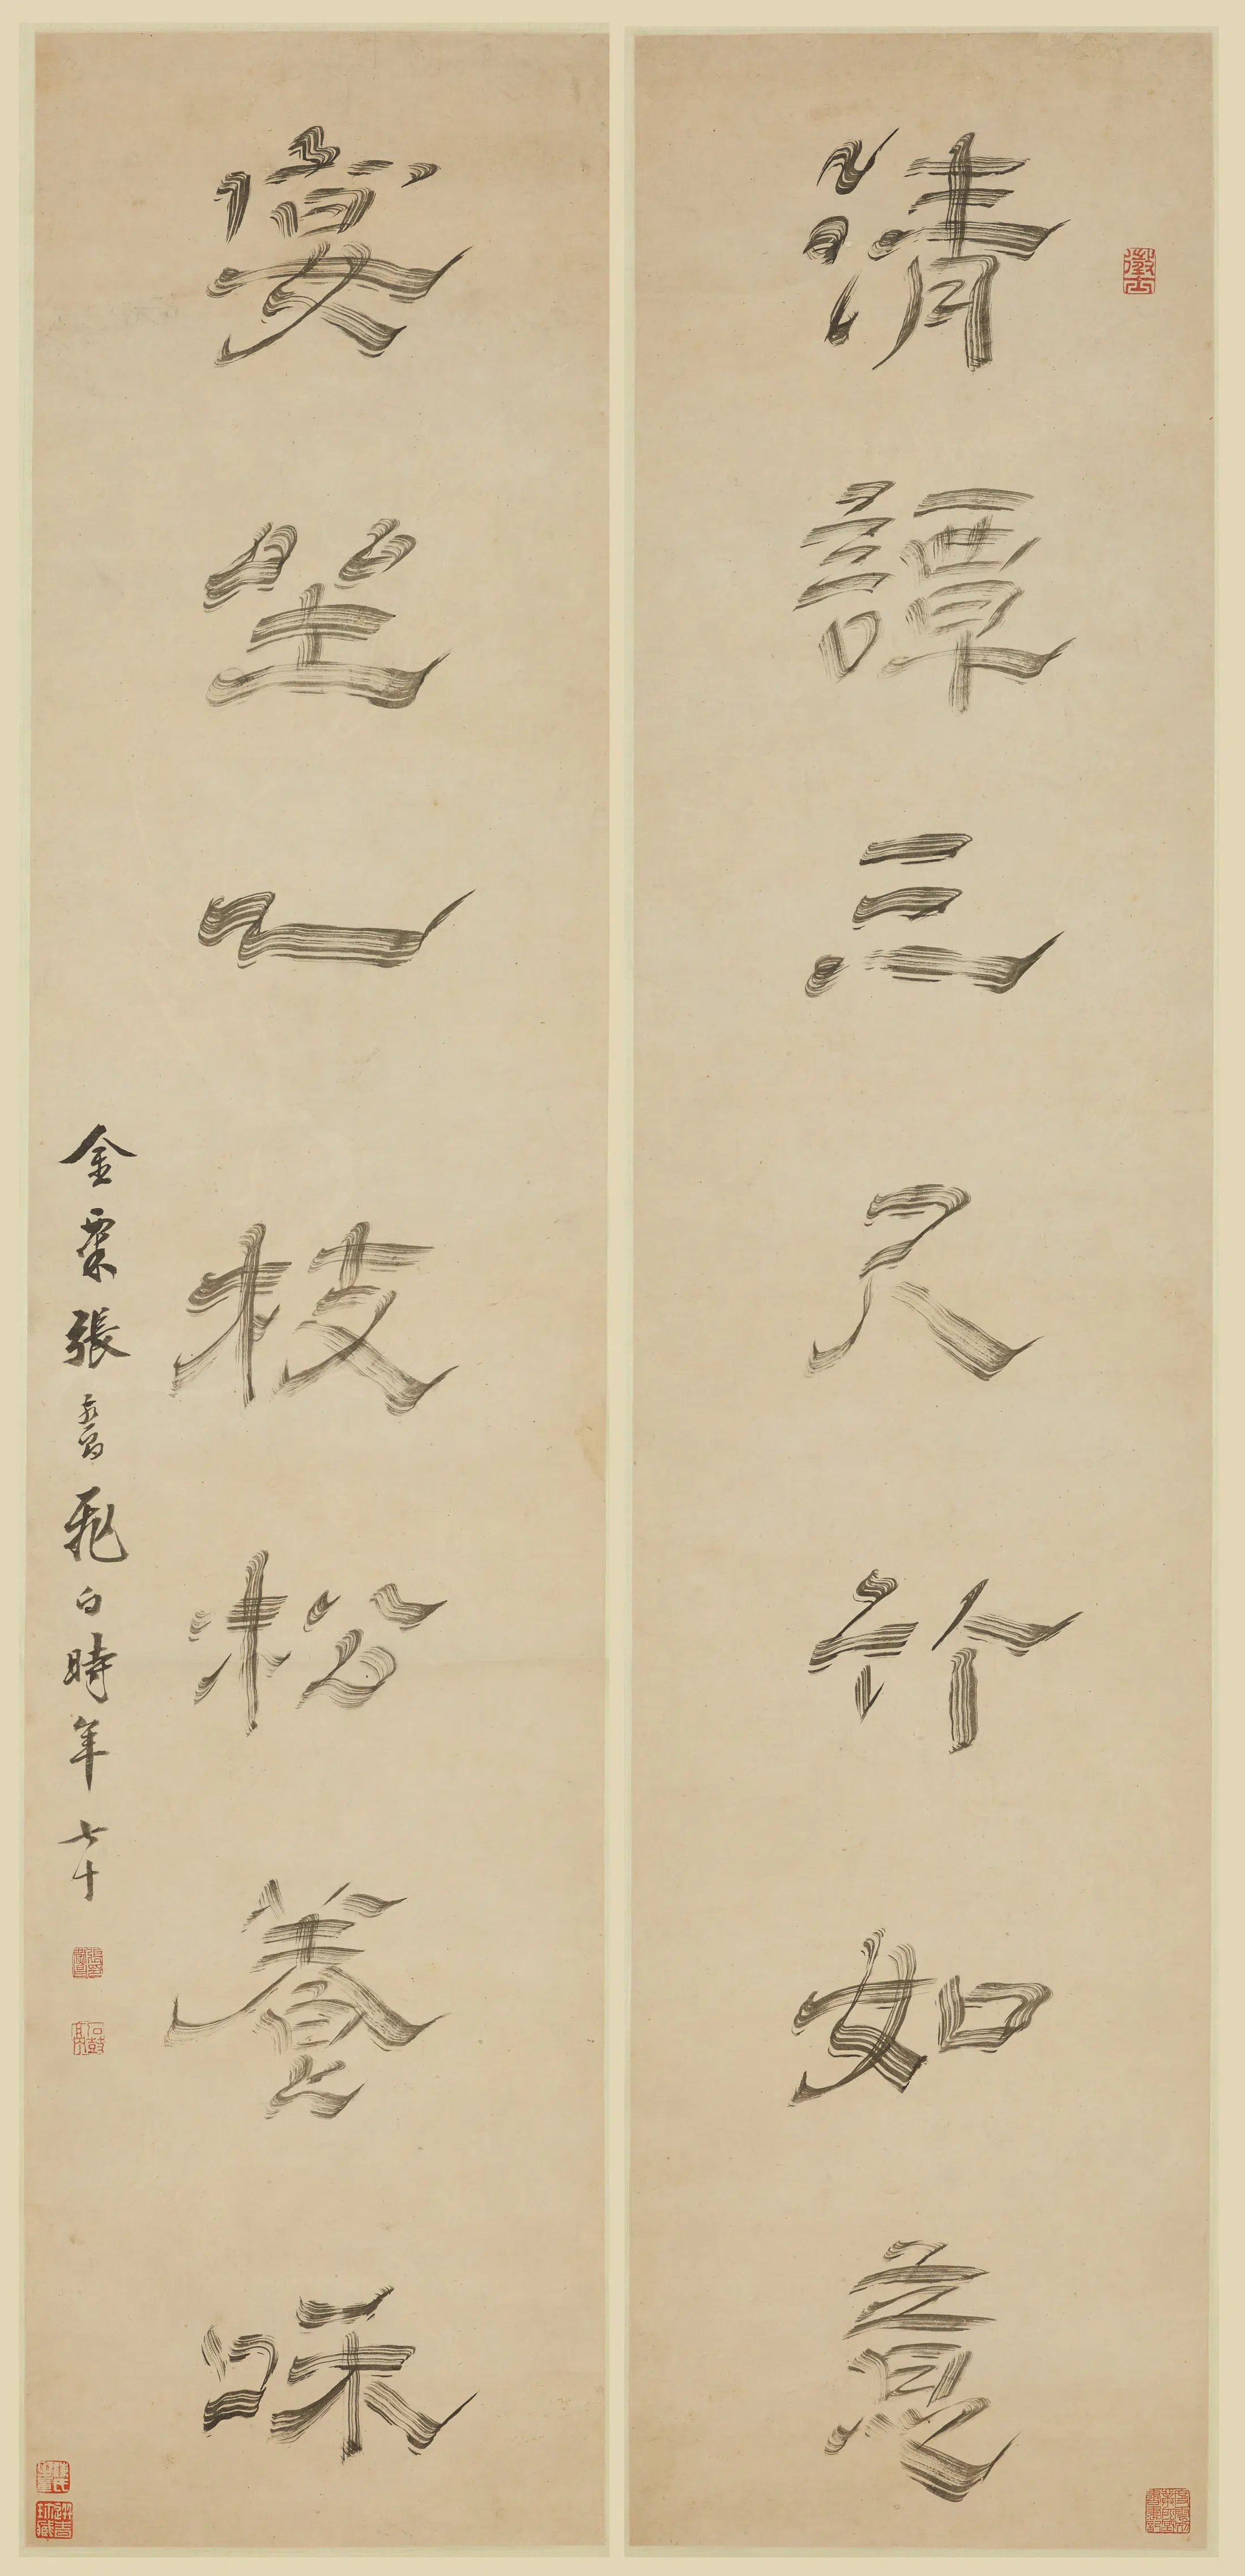 清譚三尺竹如意
宴坐一枝松養咊
金粟張燕昌飛白時年七十
石鼓亭